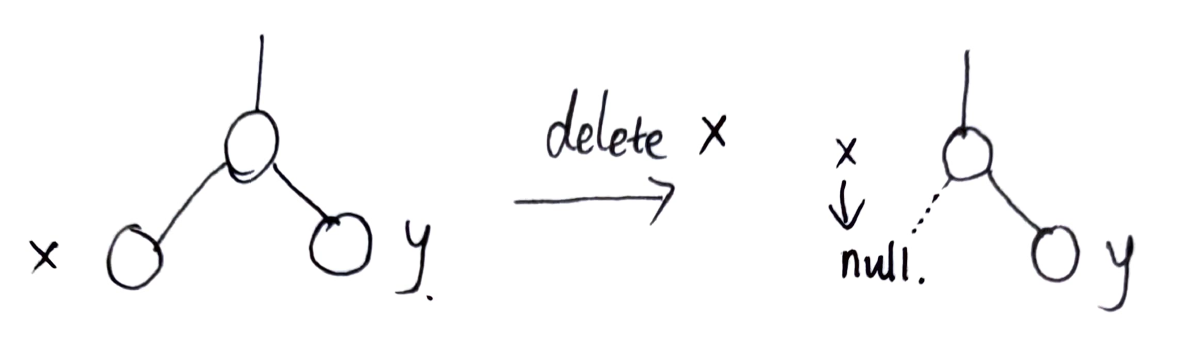 x
y.
delete x
x
null.
y